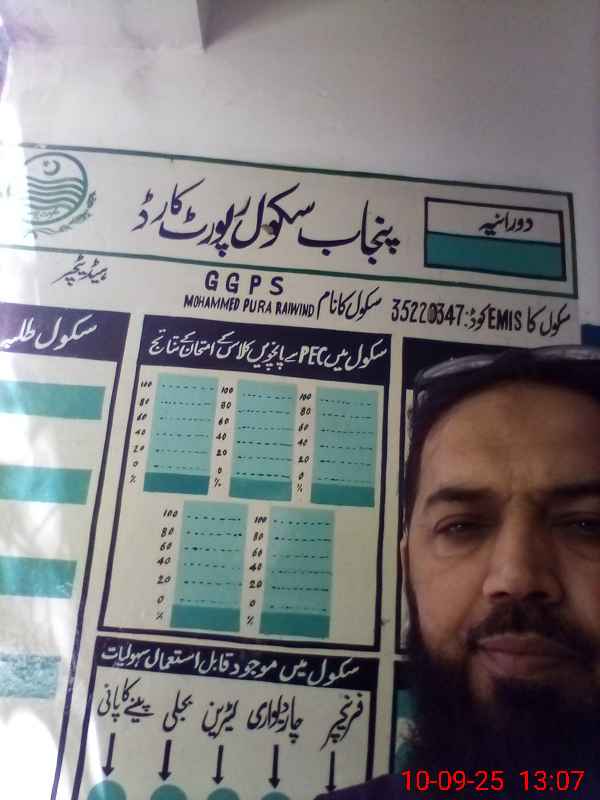 پنجاب سکول رپورٹ کارڈ
دورانیہ
ہیڈ ٹیچر
GGPS
سکول کا EMIS کوڈ: 35220347 سکول کا نام MOHAMMED PURA RAIWIND
سکول طلبہ
سکول میں PEC سے پانچویں کلاس کے امتحان کے نتائج
100 100 100
80 80 80
60 60 60
40 40 40
20 20 20
0 0 0
% % %
100 100
80 80
60 60
40 40
20 20
0 0
% %
سکول میں موجود قابل استعمال سہولیات
فرنیچر چاردیواری لیٹرین بجلی پینے کا پانی
10-09-25 13:07